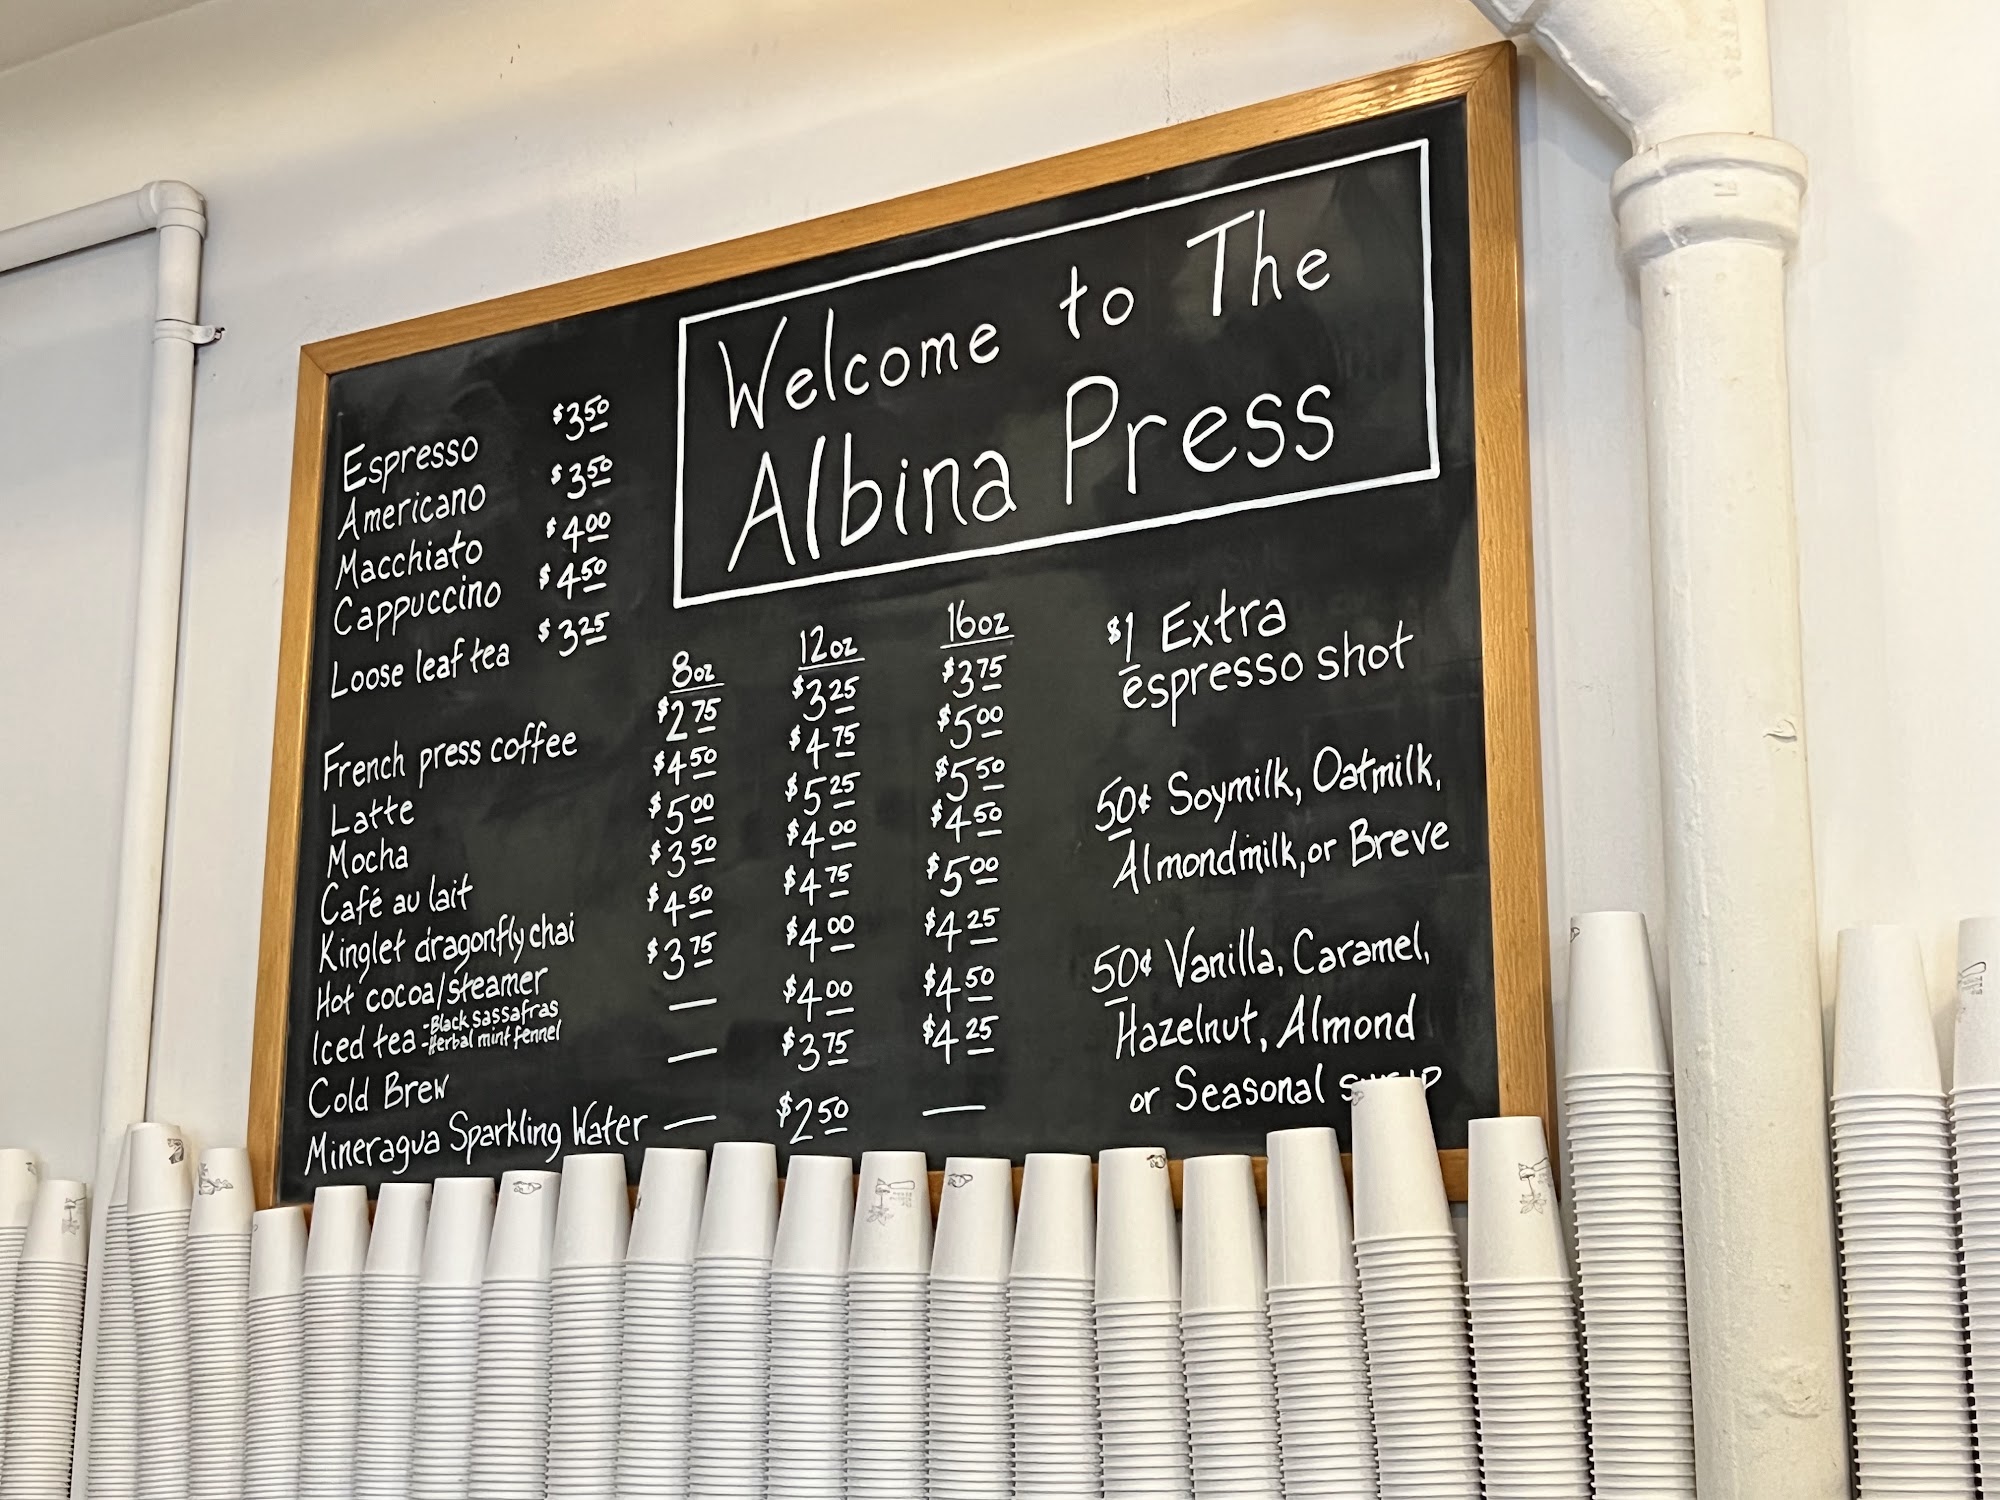 Welcome to The
Albina Press
Espresso $3.50
Americano $3.50
Macchiato $4.00
Cappuccino $4.50
Loose leaf tea $3.25
8oz 12oz 16oz
French press coffee $2.75 $3.25 $3.75
Latte $4.50 $4.75 $5.00
Mocha $5.00 $5.25 $5.50
Café au lait $3.50 $4.00 $4.50
Kinglet dragonfly chai $4.50 $4.75 $5.00
Hot cocoa/steamer $3.75 $4.00 $4.25
Iced tea -Black sassafras -Herbal mint fennel — $4.00 $4.50
Cold Brew — $3.75 $4.25
Mineragua Sparkling Water — $2.50 —
$1 Extra
espresso shot
50¢ Soymilk, Oatmilk,
Almondmilk, or Breve
50¢ Vanilla, Caramel,
Hazelnut, Almond
or Seasonal